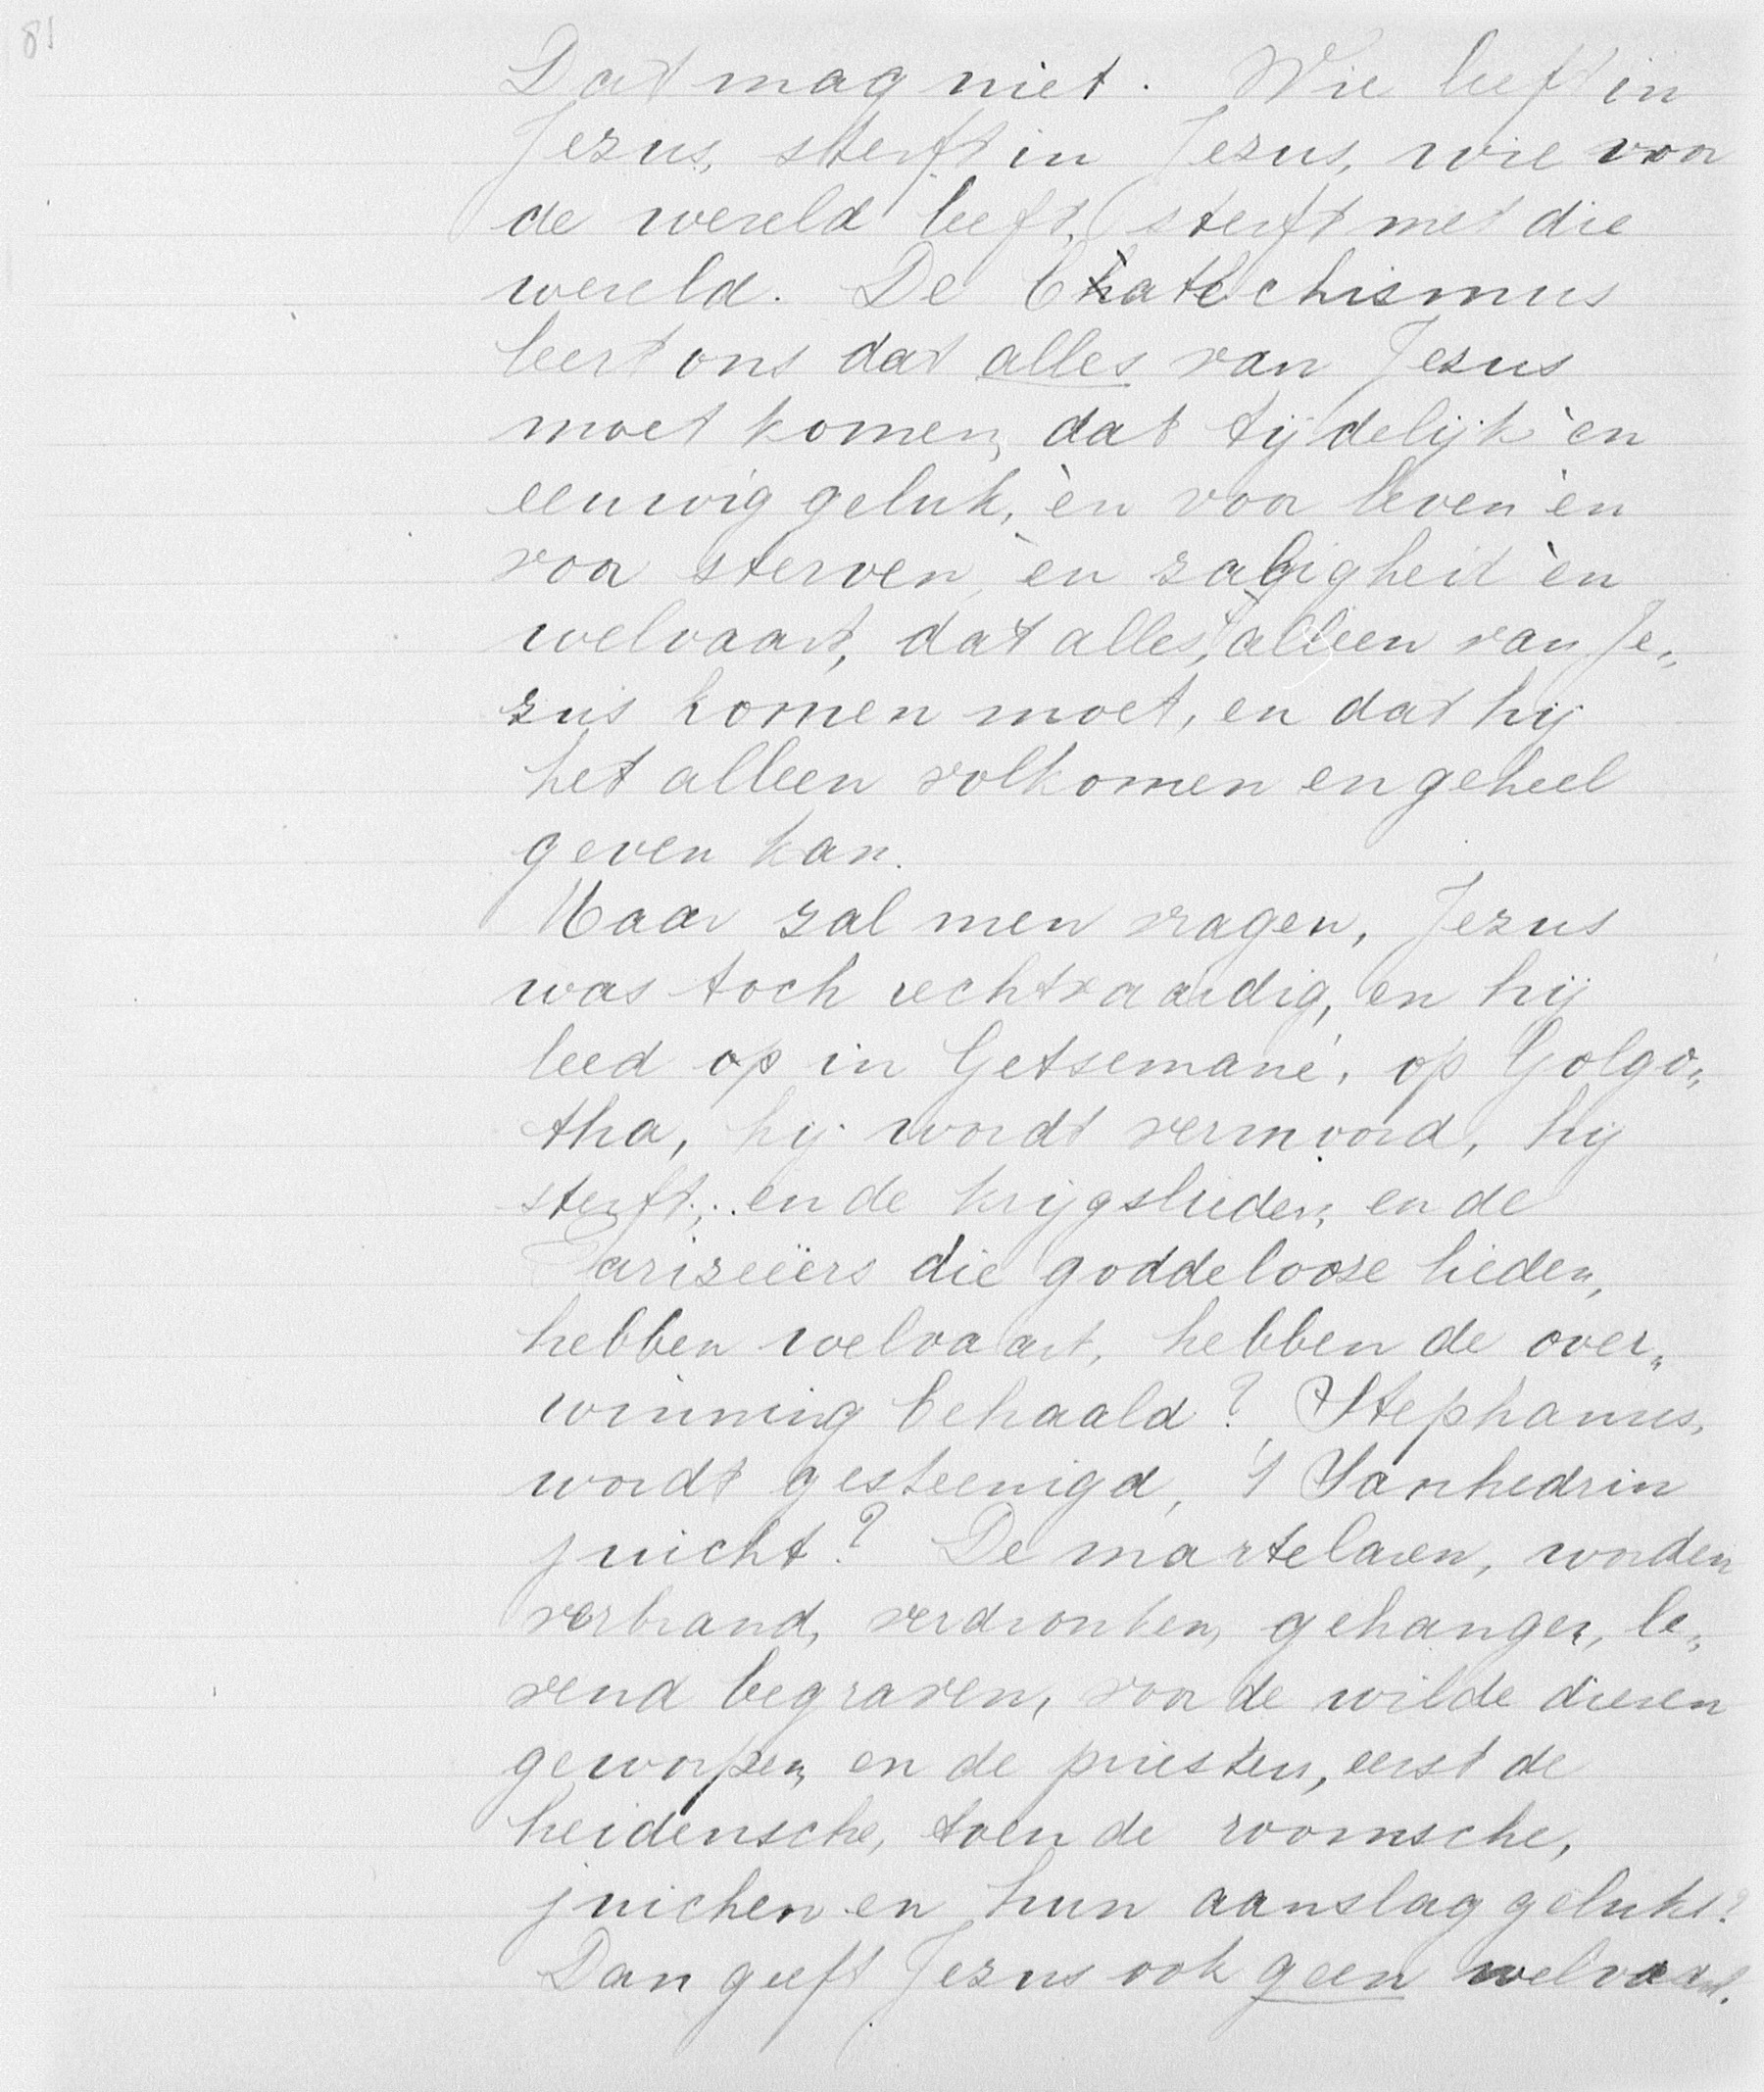 81
Dat mag niet. Wie leeft in
Jezus, sterft in Jezus, wie voor
de wereld leeft, sterft met die
wereld. De Catechismus
leert ons dat alles van Jezus
moet komen, dat tijdelijk èn
eeuwig geluk, èn voor leven èn
voor sterven, èn zaligheid èn
welvaart, dat alles, alleen van Je„
zus komen moet, en dat hij
het alleen volkomen en geheel
geven kan.
Maar zal men vragen, Jezus
was toch rechtvaardig, en hij
leed op in Getsemané, op Golgo„
tha, hij wordt vermoord, hij
sterft; en de krijgslieden, en de
Farizeeërs die goddeloose lieden,
hebben welvaart, hebben de over„
winning behaald? Stephanus,
wordt gesteenigd, 't Sanhedrin
juicht? De martelaren, worden
verbrand, verdronken, gehangen, le„
vend begraven, voor de wilde dieren
geworpen, en de priesters, eerst de
heidensche, toen de roomsche,
juichen en hun aanslag gelukt?
Dan geeft Jezus ook geen welvaart.